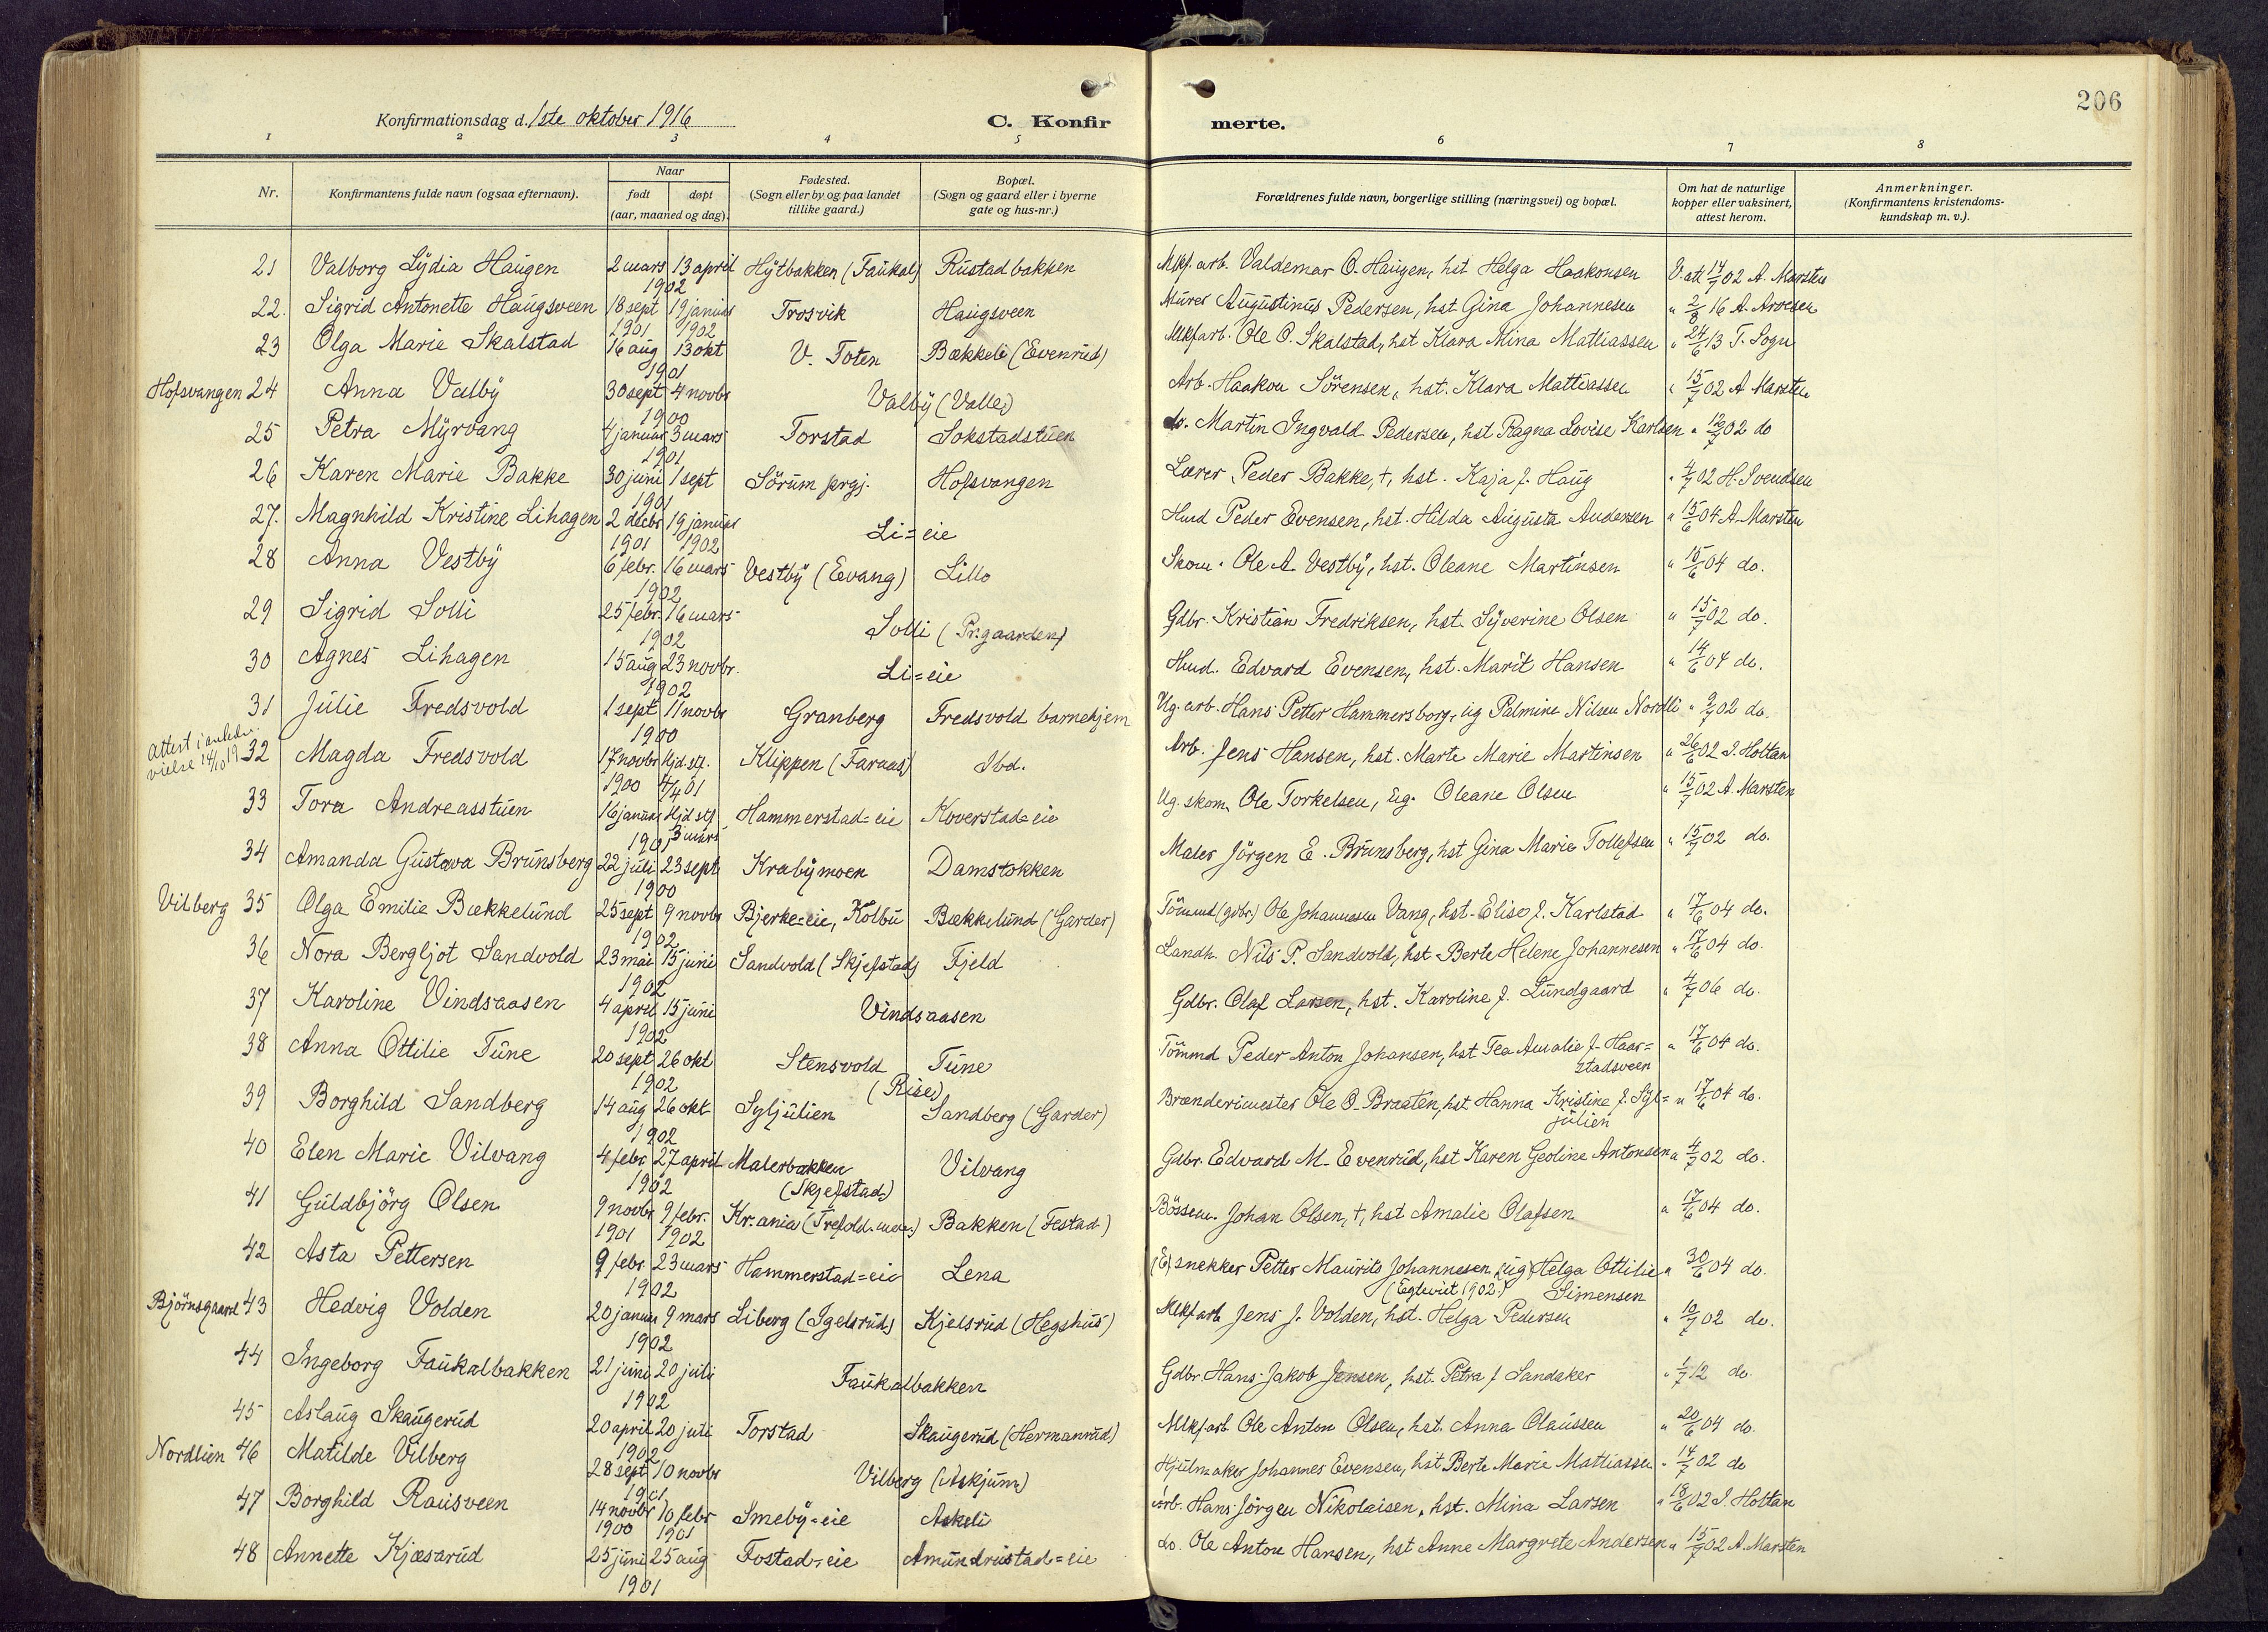 206
Konfirmationsdag d. 1ste oktober 1916
C. Konfir merte.
1 2 3 4 5 6 7 8
Nr. Konfirmantens fulde navn (ogsaa efternavn). Naar født døpt (aar, maaned og dag). Fødested. (Sogn eller by og paa landet tillike gaard.) Bopæl. (Sogn og gaard eller i byerne gate og hus-nr.) Forældrenes fulde navn, borgerlige stilling (næringsvei) og bopæl. Om hat de naturlige kopper eller vaksinert, attest herom. Anmerkninger. (Konfirmantens kristendoms-kundskap m. v.).
21 Valborg Lydia Haugen 2 mars 13 april 1902 Hytbakken (Faukal) Rustadbakken Mkf. arb. Valdemar O. Haugen, hst Helga Haakonsen V. att 14/7 02 A. Marsten
22. Sigrid Antonette Haugsveen 18 sept 1901 19 januar 1902 Trosvik Haugsveen Murer Augustinus Pedersen, hst Gina Johannesen " 2/8 16 A. Arvesen
23 Olga Marie Skalstad 16 aug 13 okt 1901 V. Toten Bækkeli (Evenrud) Mkf arb. Ole O. Skalstad, hst Klara Mina Mathiassen " 24/6 13 T. Sogn
Hofsvangen 24 Anna Valby 30 sept 4 novbr 1900 Valby (Valle) Arb. Haakon Sörensen, hst. Klara Mattiassen " 15/7 02 A Marsten
25 Petra Myrvang 4 januar 3 mars 1901 Torstad Sokstadstuen do. Martin Ingvald Pedersen, hst Ragna Lovise Karlsen " 12/7 02 do
26 Karen Marie Bakke 30 juni 1 sept 1901 Sörum prgj. Hofsvangen Lærer Peder Bakke, †, hst. Kaja f. Haug " 4/7 02 H. Svendsen
27. Magnhild Kristine Lihagen 2 decbr 1901 19 januar 1902 Li=eie Hmd Peder Evensen, hst. Hilda Augusta Andersen " 15/6 04 A. Marsten
28 Anna Vestby 6 febr. 16 mars 1902 Vestby (Evang) Lillo Skom. Ole A. Vestby, hst. Oleane Martinsen " 15/6 04 do.
29 Sigrid Solli 25 febr. 16 mars 1902 Solli (Pr.gaarden) Gdbr. Kristian Fredriksen, hst. Syverine Olsen " 15/7 02 do.
30 Agnes Lihagen 15 aug 23 novbr. 1902 Li=eie Hmd. Edvard Evensen, hst. Marit Hansen " 14/6 04 do.
31 Julie Fredsvold 1 sept 11 novbr 1900 Granberg Fredsvold barnehjem Ug. arb. Hans Petter Hammersborg, ug Palmine Nilsen Nordli " 9/7 02 do.
Attest i anledn. vielse 14/10 19 32 Magda Fredsvold 17 novbr 1900 Hjd. stf. 7/4 01 Klippen (Faraas) Ibd. Arb. Jens Hansen, hst. Marte Marie Martinsen " 26/6 02 I. Holtan
33 Tora Andreasstuen 16 januar Hjd stf 3 mars 1901 Hammerstad=eie Koverstad=eie Ug. skom. Ole Torkelsen, ug. Oleane Olsen " 15/7 02 A. Marsten
34 Amanda Gustava Brunsberg 22 juli 23 sept 1900 Krabymoen Damstokken Maler Jörgen E. Brunsberg, hst Gina Marie Tollefsen " 15/7 02 do.
Vilberg 35 Olga Emilie Bækkelund 25 sept 9 novbr 1902 Bjerke=eie, Kolbu Bækkelund (Garder) Tömmd (gdbr.) Ole Johannesen Vang, hst. Elise f. Karlstad " 17/6 04 do.
36 Nora Bergljot Sandvold 23 mai 15 juni 1902 Sandvold (Skjefstad) Fjeld Landh. Nils P. Sandvold, hst Berte Helene Johannesen " 17/6 04 do.
37 Karoline Vindsaasen 4 april 15 juni 1902 Vindsaasen Gdbr. Olaf Larsen, hst. Karoline f. Lundgaard " 4/7 06 do.
38 Anna Ottilie Tune 20 sept 26 okt 1902 Stensvold (Rise) Tune Tömmd Peder Anton Johansen, hst Tea Amalie f. Haar=stadsveen " 17/6 04 do.
39 Borghild Sandberg 14 aug 26 okt 1902 Syljulien Sandberg (Garder) Brænderimester Ole O. Braaten, hst Hanna Kristine f. Syl=julien " 17/6 04 do.
40 Elen Marie Vilvang 4 febr 27 april 1902 Malerbakken (Skjefstad) Vilvang Gdbr. Edvard M. Evenrud, hst Karen Geoline Antonsen " 4/7 02 do.
41 Guldbjörg Olsen 9 novbr 1901 9 febr. 1902 Kr.ania (Trefold. men.) Bakken (Festad) Bössem. Johan Olsen, †, hst Amalie Olafsen " 17/6 04 do.
42 Asta Pettersen 9 febr 23 mars 1902 Hammerstad=eie Lena (E) snekker Petter Mauritz Johannesen (ug) Helga Ottilie Simensen (Egteviet 1902) " 30/6 04 do.
Björnsgaard 43 Hedvig Volden 20 januar 9 mars 1902 Liberg (Igelsrud) Kjelsrud (Hegshus) Mkf arb Jens J. Volden, hst. Helga Pedersen " 10/7 02 do.
44 Ingeborg Faukalbakken 21 juni 20 juli 1902 Faukalbakken Gdbr. Hans Jakob Jensen, hst. Petra f Sandaker " 1/7 12 do.
45 Aslaug Skaugerud 20 april 20 juli 1902 Torstad Skaugerud (Hermanrud) Mkf arb. Ole Anton Olsen, hst. Anna Olaussen " 20/6 04 do.
Nordlien 46 Matilde Vilberg 28 sept 10 novbr 1901 Vilberg (Askjum) Hjulmaker Johannes Evensen, hst Berte Marie Mattiassen " 14/7 02 do
47 Borghild Rausveen 14 novbr 1900 10 febr 1901 Smeby=eie Askeli Arb. Hans Jörgen Nikolaisen, hst. Mina Larsen " 18/6 02 I. Holtan
48 Annette Kjæsarud 25 juni 25 aug 1901 Fostad=eie Amundrustad=eie do. Ole Anton Hansen, hst Anne Margrete Andersen " 15/7 02 A. Marsten